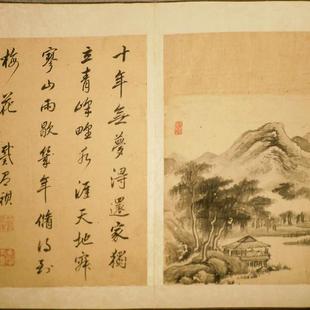 十年無夢淂還家獨
立青峰野水涯天地寂
寥山雨歇幾年脩得到
梅花 戴有祺